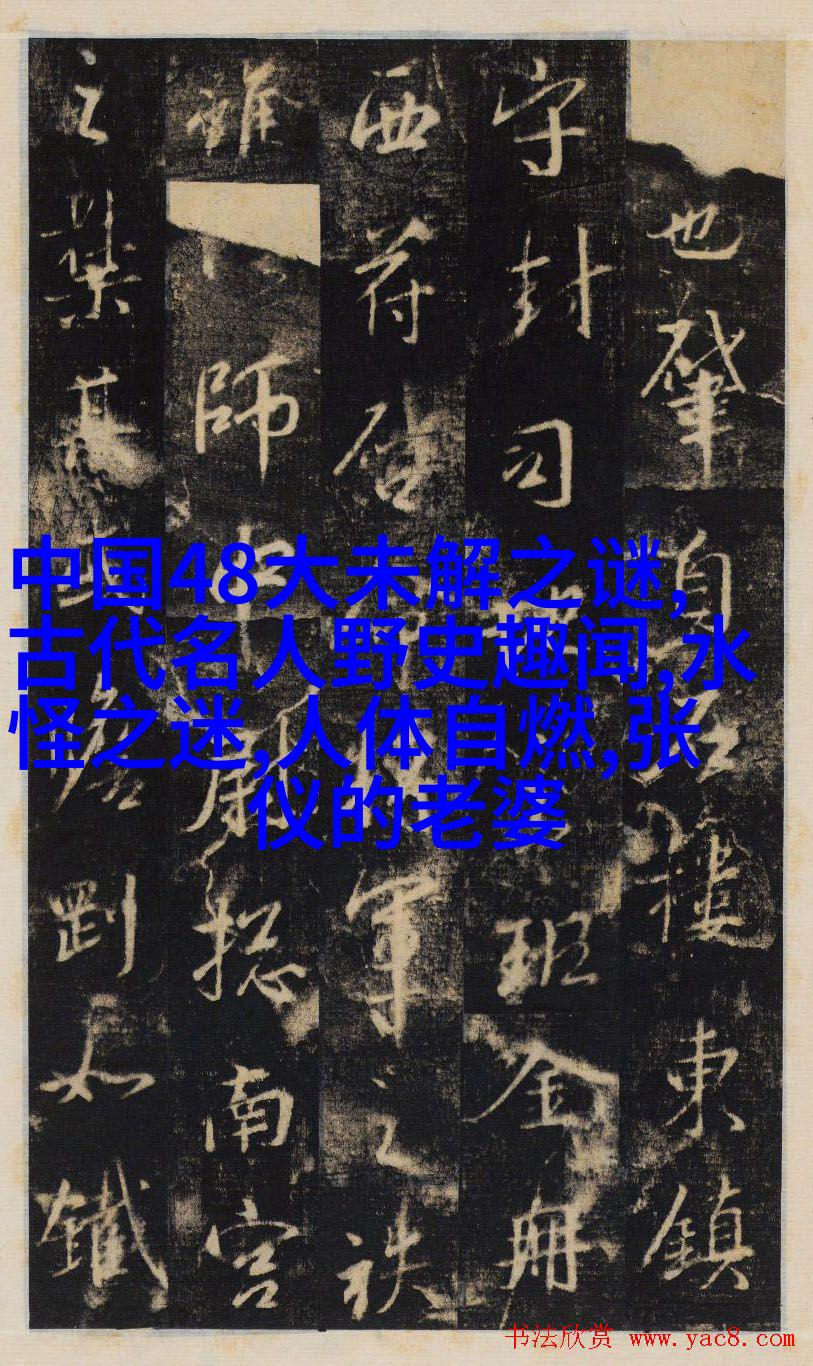 中国48大未解之谜,
古代名人野史趣闻,水
怪之迷,人体自燃,张
仪的老婆
也肇自樓東鎮
守封司班金冊
西符啓軍之秩
雖師中顧揔南宮
之集其剛如鐵
书法欣赏 www.yac8.com